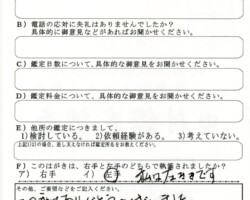 B）電話の応対に失礼はありませんでしたか？
具体的に御意見などがあればお聞かせください。
C）鑑定日数について、具体的な御意見をお聞かせください。
D）鑑定料金について、具体的な御意見をお聞かせください。
E）他所の鑑定につきまして。
1）検討している。 2）依頼経験がある。 3）考えていない。
上記1)2)の場合、差し支えなければ鑑定所名をお教えください。
F）このはがきは、右手と左手のどちらで執筆されましたか？
ア）右手 イ）左手 私は左ききです
その他、ご要望などをご記入ください。